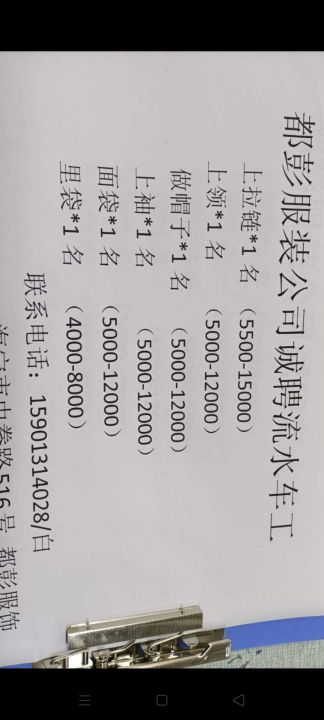 都彭服装公司诚聘流水车工
上拉链*1 名 （5500-15000）
上领*1 名 （5000-12000）
做帽子*1 名 （5000-12000）
上袖*1 名 （5000-12000）
面袋*1 名 （5000-12000）
里袋*1 名 （4000-8000）
联系电话：15901314028/白
海宁市忠券路516号 都彭服饰